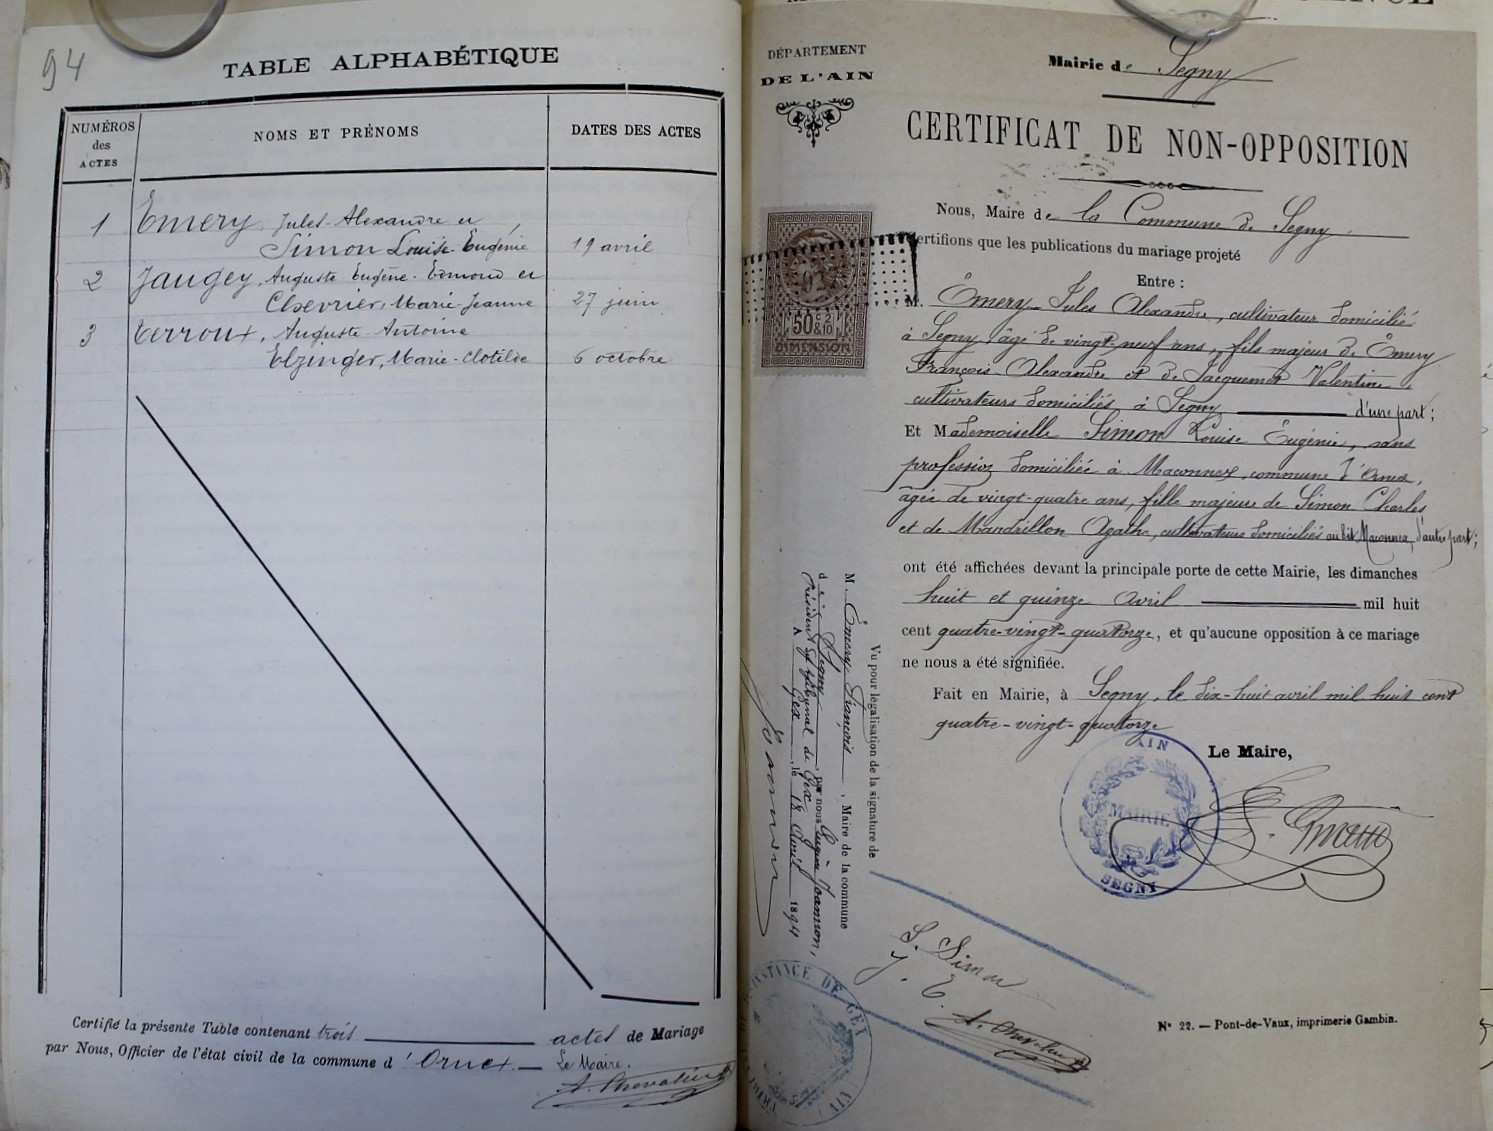 94
TABLE ALPHABÉTIQUE
NUMÉROS
des
ACTES
NOMS ET PRÉNOMS
DATES DES ACTES
1 Emery Jules-Alexandre et
Simon Louise-Eugénie 19 avril
2 Jaugey, Auguste Eugène-Edmond et
Chevrier, Marie-Jeanne 27 juin
3 Terroux, Auguste-Antoine
Elzinger, Marie-Clotilde 6 octobre
Certifié la présente Table contenant trois actes de Mariage
par Nous, Officier de l'état civil de la commune d'Ornex.
Le Maire.
A. Chevalier
DÉPARTEMENT
DE L'AIN
Mairie de Segny
CERTIFICAT DE NON-OPPOSITION
50 c 2/10
DIMENSION
Nous, Maire de la Commune de Segny
Certifions que les publications du mariage projeté
Entre :
M. Emery Jules Alexandre, cultivateur domicilié
à Segny âgé de vingt-neuf ans, fils majeur de Emery
François Alexandre et de Jacquemot Valentine
cultivateurs domiciliés à Segny d'une part;
Et Mademoiselle Simon Louise Eugénie, sans
profession domiciliée à Maconnex, commune d'Ornex,
âgée de vingt-quatre ans, fille majeure de Simon Charles
et de Mandrillon Agath, cultivateurs domiciliés au dit Maconnex, d'autre part;
ont été affichées devant la principale porte de cette Mairie, les dimanches
huit et quinze avril mil huit
cent quatre-vingt-quatorze, et qu'aucune opposition à ce mariage
ne nous a été signifiée.
Fait en Mairie, à Segny, le dix-huit avril mil huit cent
quatre-vingt-quatorze
Le Maire,
AIN
MAIRIE
SEGNY
Vu pour légalisation de la signature de
M. Emery François, Maire de la commune
de Segny, par nous Eugène Joannon,
Président du tribunal de Gex
A Gex, le 18 Avril 1894
Joannon
INSTANCE DE GEX
AIN
L. Simon
J. E.
A. Chevalier
N° 22. — Pont-de-Vaux, imprimerie Gambin.